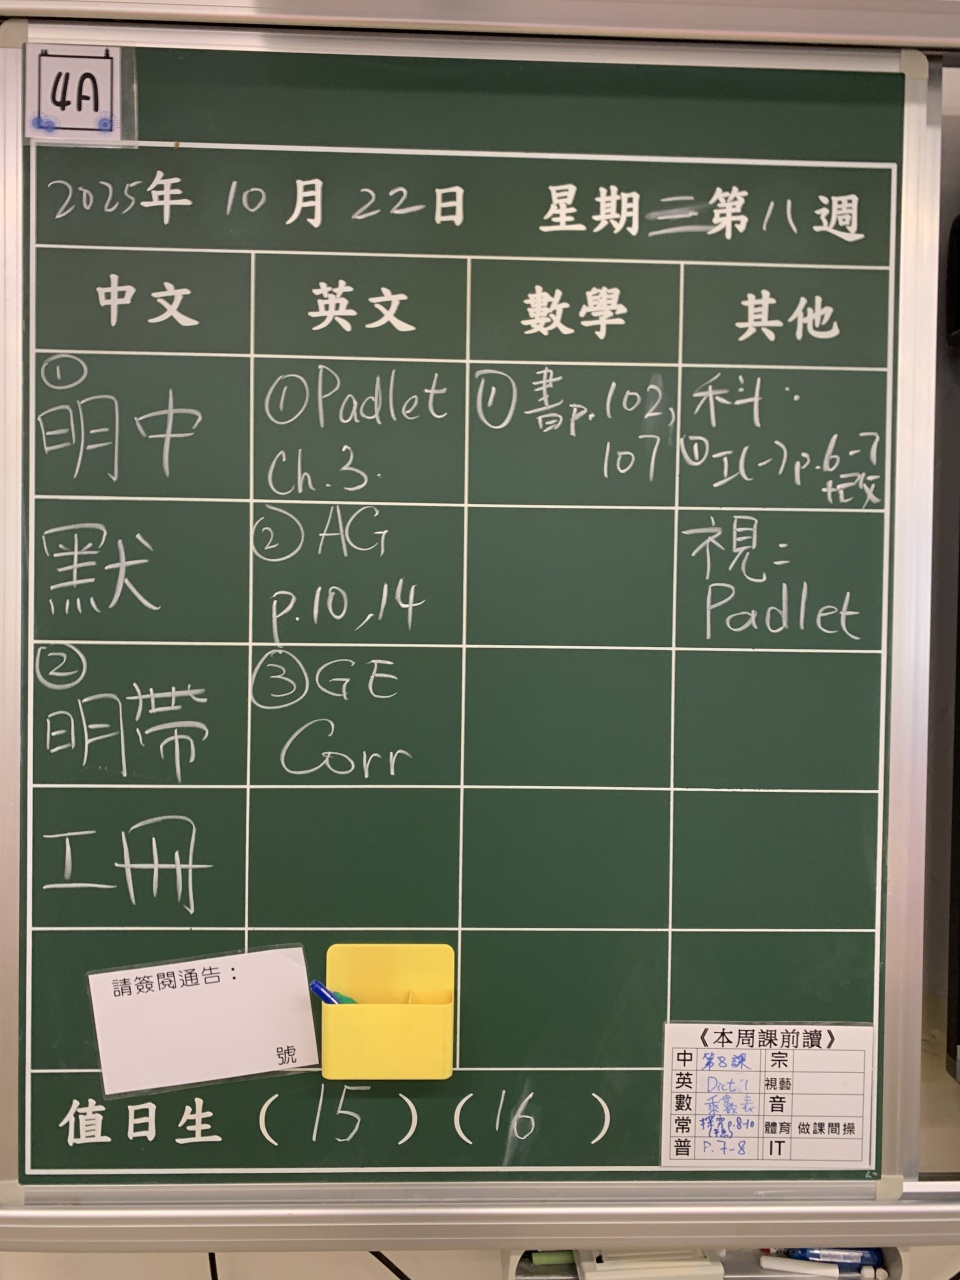 4A
2025年 10月 22日 星期三 第八週
中文 英文 數學 其他
①
明中
默
②
明帶
工冊
①Padlet
Ch.3.
② AG
p.10,14
③ GE
Corr
① 書p.102,
107
科:
①工(一)p.6-7
視:
Padlet
請簽閱通告：
號
值日生 ( 15 ) ( 16 )
《本周課前讀》
中 第8課 宗
英 Dict.1 視藝
數 乘數表 音
常 探究p.8-10 體育 做課間操
普 P.7-8 IT